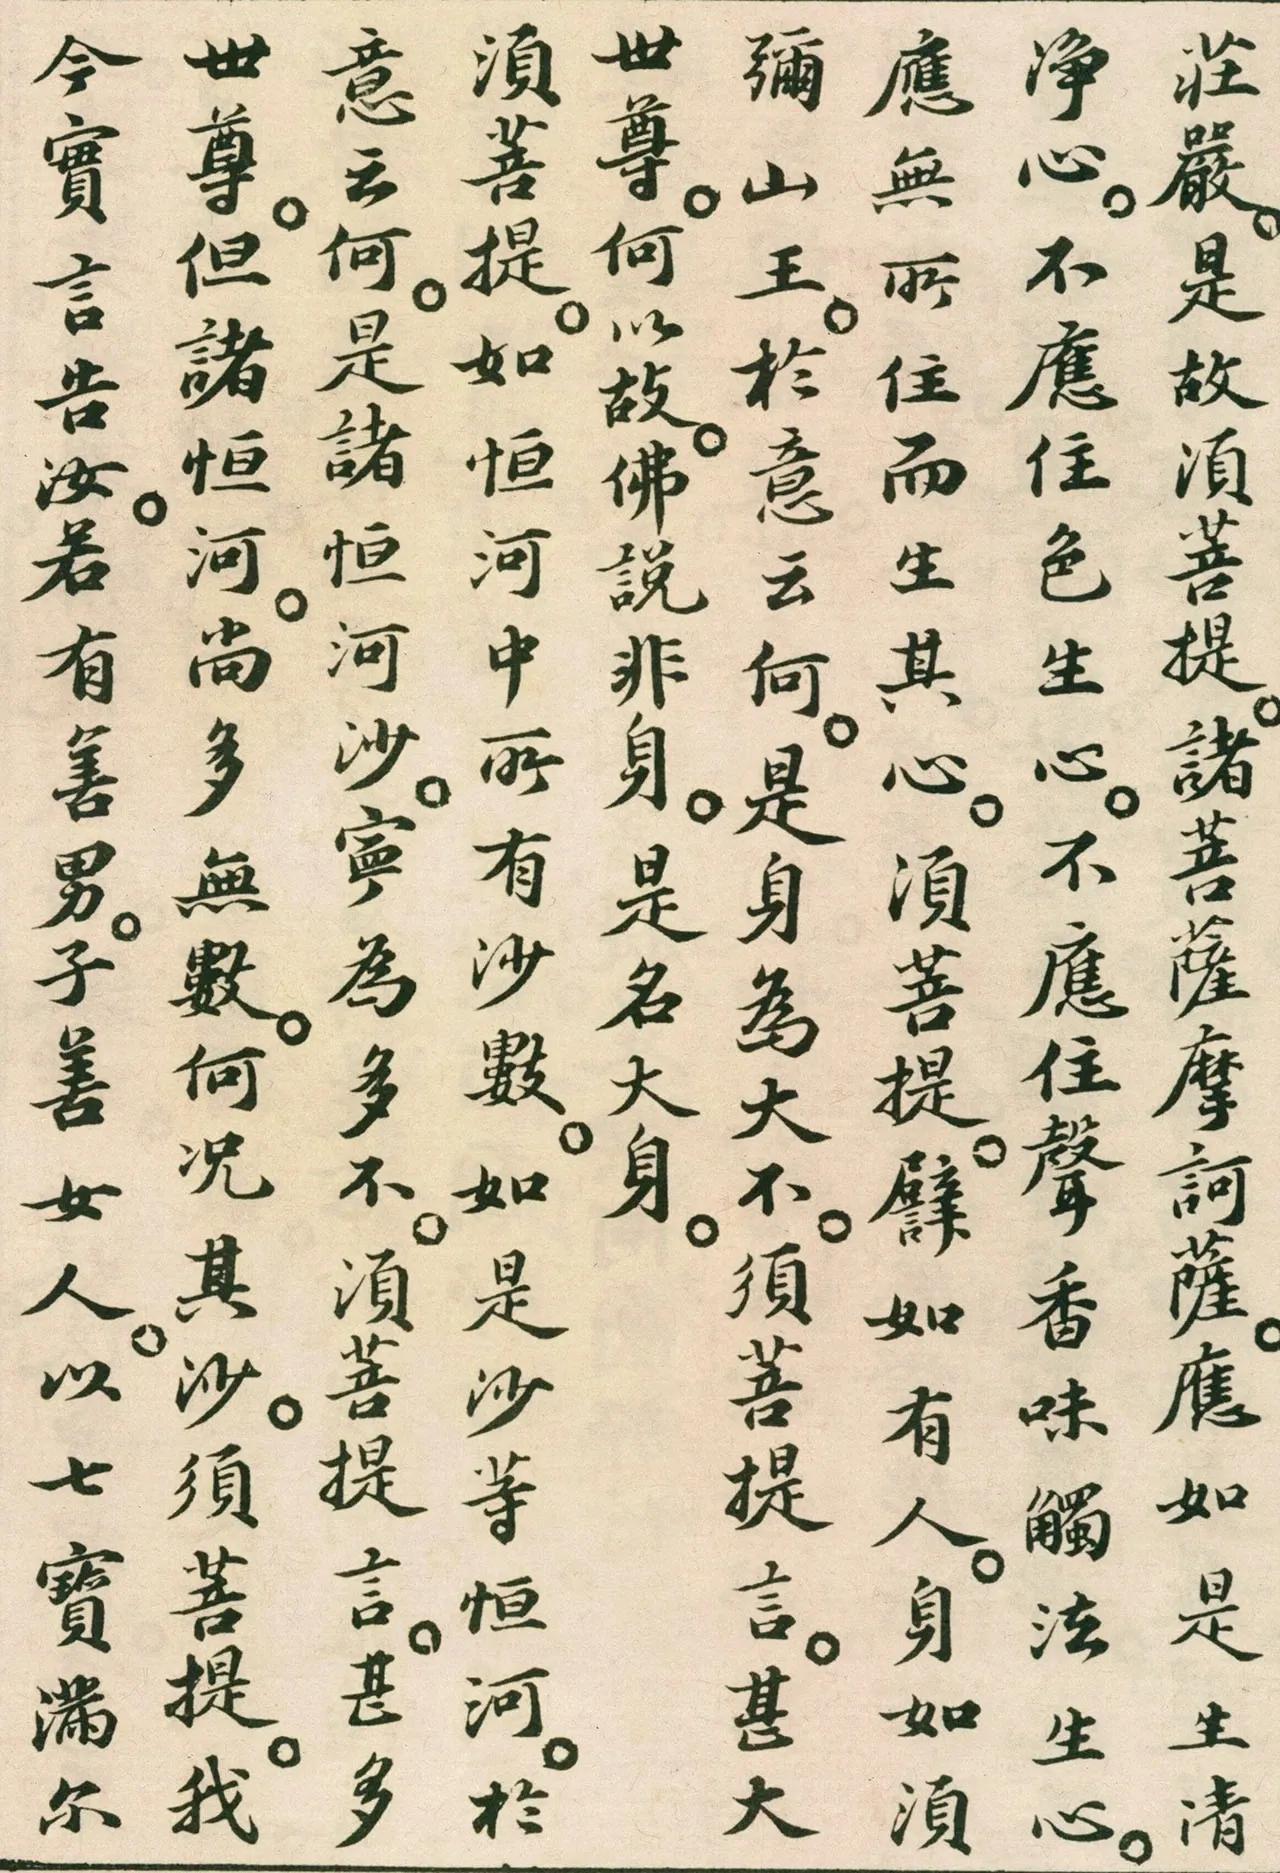 莊嚴。是故須菩提。諸菩薩摩訶薩。應如是生清
净心。不應住色生心。不應住聲香味觸法生心。
應無所住而生其心。須菩提。譬如有人。身如須
彌山王。於意云何。是身為大不。須菩提言。甚大
世尊。何以故。佛說非身。是名大身。
須菩提。如恒河中所有沙數。如是沙等恒河。於
意云何。是諸恒河沙。寧為多不。須菩提言。甚多
世尊。但諸恒河。尚多無數。何況其沙。須菩提。我
今實言告汝。若有善男。子善女人。以七寶滿尔